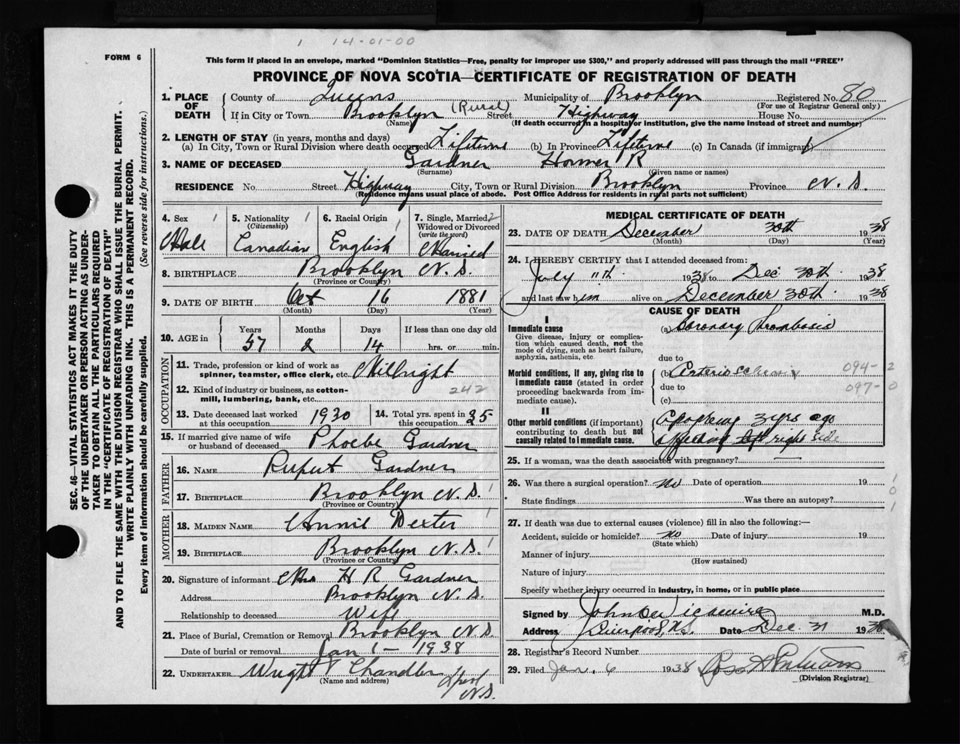 1 14-01-00
FORM 6
This form if placed in an envelope, marked "Dominion Statistics—Free, penalty for improper use $300," and properly addressed will pass through the mail "FREE"
PROVINCE OF NOVA SCOTIA—CERTIFICATE OF REGISTRATION OF DEATH
SEC. 46—VITAL STATISTICS ACT MAKES IT THE DUTY
OF THE UNDERTAKER OR PERSON ACTING AS UNDER-
TAKER TO OBTAIN ALL THE PARTICULARS REQUIRED
IN THE "CERTIFICATE OF REGISTRATION OF DEATH"
AND TO FILE THE SAME WITH THE DIVISION REGISTRAR WHO SHALL ISSUE THE BURIAL PERMIT.
WRITE PLAINLY WITH UNFADING INK. THIS IS A PERMANENT RECORD.
Every item of information should be carefully supplied. (See reverse side for instructions.)
1. PLACE OF DEATH
County of Queens Municipality of Brooklyn Registered No. 80
(For use of Registrar General only)
If in City or Town Brooklyn (Rural) Street Highway House No.
(Name) (If death occurred in a hospital or institution, give the name instead of street and number)
2. LENGTH OF STAY (in years, months and days)
(a) In City, Town or Rural Division where death occurred Lifetime (b) In Province Lifetime (c) In Canada (if immigrant)
3. NAME OF DECEASED Gardner Homer R
(Surname) (Given name or names)
RESIDENCE No. Street Highway City, Town or Rural Division Brooklyn Province N.S.
(Residence means usual place of abode. Post Office Address for residents in rural parts not sufficient)
4. Sex 1 Male
5. Nationality 1 (Citizenship) Canadian
6. Racial Origin 1 English
7. Single, Married 2 Widowed or Divorced (write the word) Married
8. BIRTHPLACE Brooklyn N.S.
(Province or Country)
9. DATE OF BIRTH Oct 16 1881
(Month) (Day) (Year)
10. AGE in Years Months Days If less than one day old
57 2 14 hrs. or min.
OCCUPATION
11. Trade, profession or kind of work as
spinner, teamster, office clerk, etc. Millwright
12. Kind of industry or business, as cotton-
mill, lumbering, bank, etc. 242
13. Date deceased last worked
at this occupation 1930
14. Total yrs. spent in
this occupation 35
15. If married give name of wife
or husband of deceased Phoebe Gardner
FATHER
16. NAME Rupert Gardner
17. BIRTHPLACE Brooklyn N.S. 1
(Province or Country)
MOTHER
18. MAIDEN NAME Annie Dexter
19. BIRTHPLACE Brooklyn N.S. 1
(Province or Country)
20. Signature of informant Mrs H R Gardner
Address Brooklyn N.S.
Relationship to deceased Wife
21. Place of Burial, Cremation or Removal Brooklyn N.S.
Date of burial or removal Jan 1 — 1938
22. UNDERTAKER Wright Chandler
(Name and address)
N.S.
MEDICAL CERTIFICATE OF DEATH
23. DATE OF DEATH December 30th 1938
(Month) (Day) (Year)
24. I HEREBY CERTIFY that I attended deceased from:
July 11th 1938 to Dec 30th 1938
and last saw him alive on December 30th 1938
CAUSE OF DEATH
I
Immediate cause (a) Coronary Thrombosis
Give disease, injury or complica-
tion which caused death, not the
mode of dying, such as heart failure,
asphyxia, asthenia, etc.
due to
Morbid conditions, if any, giving rise to
immediate cause (stated in order
proceeding backwards from im-
mediate cause).
(b) 094-2
due to 097-0
(c)
II
Other morbid conditions (if important)
contributing to death but not
causally related to immediate cause.
Apoplexy 3 yrs ago
affecting left right side
25. If a woman, was the death associated with pregnancy? —
26. Was there a surgical operation? no Date of operation 19
State findings Was there an autopsy?
27. If death was due to external causes (violence) fill in also the following:—
Accident, suicide or homicide? no Date of injury 19
(State which)
Manner of injury
(How sustained)
Nature of injury
Specify whether injury occurred in industry, in home, or in public place
Signed by John M.D.
Address Liverpool, N.S. Date Dec. 31 1938
28. Registrar's Record Number
29. Filed Jan. 6 1938
(Division Registrar)